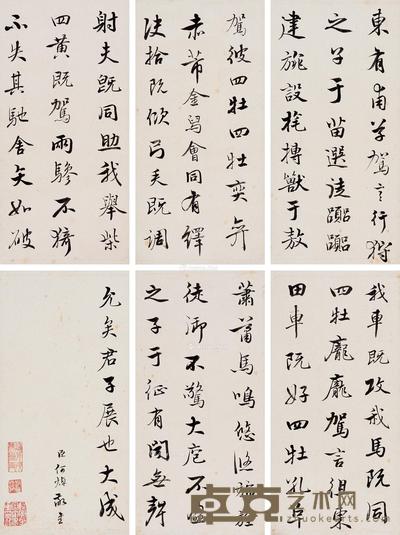 我車既攻我馬既同
四牡龐龐駕言徂東
田車既好四牡孔阜
東有甫草駕言行狩
之子于苗選徒囂囂
建旐設旄搏獸于敖
駕彼四牡四牡奕奕
赤芾金舄會同有繹
決拾既佽弓矢既調
射夫既同助我舉柴
四黃既駕兩驂不猗
不失其馳舍矢如破
蕭蕭馬鳴悠悠旆旌
徒御不驚大庖不盈
之子于征有聞無聲
允矣君子展也大成
臣何焯敬書
卓克艺术网